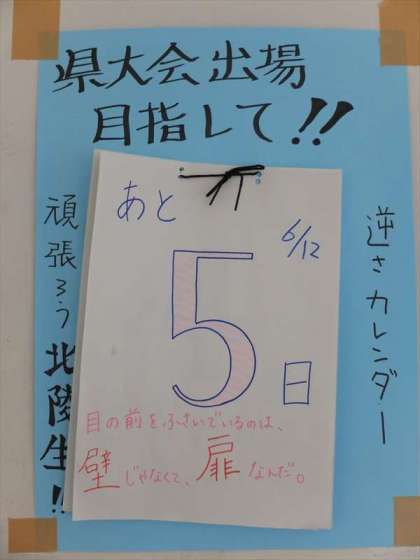 県大会出場
目指して!!
逆さカレンダー
頑張ろう北陵生!!
あと
6/12
5日
目の前をふさいでいるのは、
壁じゃなくて、扉なんだ。